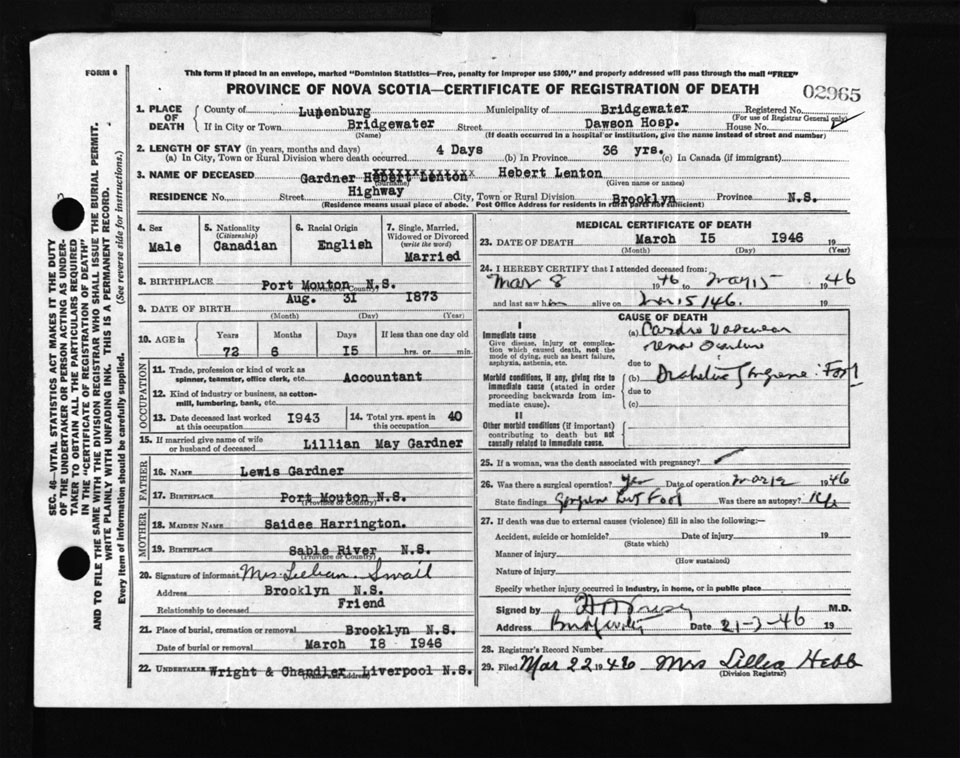 FORM 6
This form if placed in an envelope, marked "Dominion Statistics—Free, penalty for improper use $300," and properly addressed will pass through the mail "FREE"
PROVINCE OF NOVA SCOTIA—CERTIFICATE OF REGISTRATION OF DEATH
02965
1. PLACE OF DEATH
County of Lunenburg Municipality of Bridgewater Registered No.
(For use of Registrar General only)
If in City or Town Bridgewater Street Dawson Hosp. House No.
(Name) (If death occurred in a hospital or institution, give the name instead of street and number)
2. LENGTH OF STAY (in years, months and days)
(a) In City, Town or Rural Division where death occurred 4 Days (b) In Province 36 yrs. (c) In Canada (if immigrant)
3. NAME OF DECEASED Gardner Hebert Lenton Hebert Lenton
(Surname) (Given name or names)
RESIDENCE No. Street Highway City, Town or Rural Division Brooklyn Province N.S.
(Residence means usual place of abode. Post Office Address for residents in rural parts not sufficient)
4. Sex
Male
5. Nationality
(Citizenship)
Canadian
6. Racial Origin
English
7. Single, Married, Widowed or Divorced
(write the word)
Married
8. BIRTHPLACE Port Mouton N.S.
(Province or Country)
9. DATE OF BIRTH Aug. 31 1873
(Month) (Day) (Year)
10. AGE in
Years Months Days If less than one day old
72 6 15 hrs. or min.
OCCUPATION
11. Trade, profession or kind of work as spinner, teamster, office clerk, etc. Accountant
12. Kind of industry or business, as cotton-mill, lumbering, bank, etc.
13. Date deceased last worked at this occupation 1943
14. Total yrs. spent in this occupation 40
15. If married give name of wife or husband of deceased Lillian May Gardner
FATHER
16. NAME Lewis Gardner
17. BIRTHPLACE Port Mouton N.S.
MOTHER
18. MAIDEN NAME Saidee Harrington.
19. BIRTHPLACE Sable River N.S.
(Province or Country)
20. Signature of informant Mrs Lillian Swail
Address Brooklyn N.S.
Relationship to deceased Friend
21. Place of burial, cremation or removal Brooklyn N.S.
Date of burial or removal March 18 1946
22. UNDERTAKER Wright & Chandler Liverpool N.S.
MEDICAL CERTIFICATE OF DEATH
23. DATE OF DEATH March 15 1946 19
(Month) (Day) (Year)
24. I HEREBY CERTIFY that I attended deceased from:
Mar 8 1946 to Mar 15 1946
and last saw him alive on Mar 15/46. 19
CAUSE OF DEATH
I
Immediate cause
Give disease, injury or complication which caused death, not the mode of dying, such as heart failure, asphyxia, asthenia, etc.
(a) Cardio Vascular
renal
due to
Morbid conditions, if any, giving rise to immediate cause (stated in order proceeding backwards from immediate cause).
(b) Diabetic Gangrene: Foot
due to
(c)
II
Other morbid conditions (if important) contributing to death but not causally related to immediate cause.
25. If a woman, was the death associated with pregnancy?
26. Was there a surgical operation? Yes Date of operation Mar 12 1946
State findings Gangrene Left Foot Was there an autopsy?
27. If death was due to external causes (violence) fill in also the following:—
Accident, suicide or homicide? Date of injury 19
(State which)
Manner of injury
(How sustained)
Nature of injury
Specify whether injury occurred in industry, in home, or in public place
Signed by M.D.
Address Bridgewater Date 21-3-46 19
28. Registrar's Record Number
29. Filed Mar 22 1946 Mrs Lillia Hebb
(Division Registrar)
SEC. 46—VITAL STATISTICS ACT MAKES IT THE DUTY
OF THE UNDERTAKER OR PERSON ACTING AS UNDER-
TAKER TO OBTAIN ALL THE PARTICULARS REQUIRED
IN THE "CERTIFICATE OF REGISTRATION OF DEATH"
AND TO FILE THE SAME WITH THE DIVISION REGISTRAR WHO SHALL ISSUE THE BURIAL PERMIT.
WRITE PLAINLY WITH UNFADING INK. THIS IS A PERMANENT RECORD.
Every item of information should be carefully supplied. (See reverse side for instructions.)